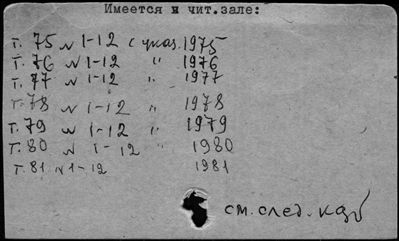 Имеется в чит.зале:
т. 75 № 1-12 с указ. 1975
т. 76 № 1-12 " 1976
т. 77 № 1-12 " 1977
т. 78 № 1-12 " 1978
т. 79 № 1-12 " 1979
т. 80 № 1-12 " 1980
т. 81 № 1-12 1981
см. след.